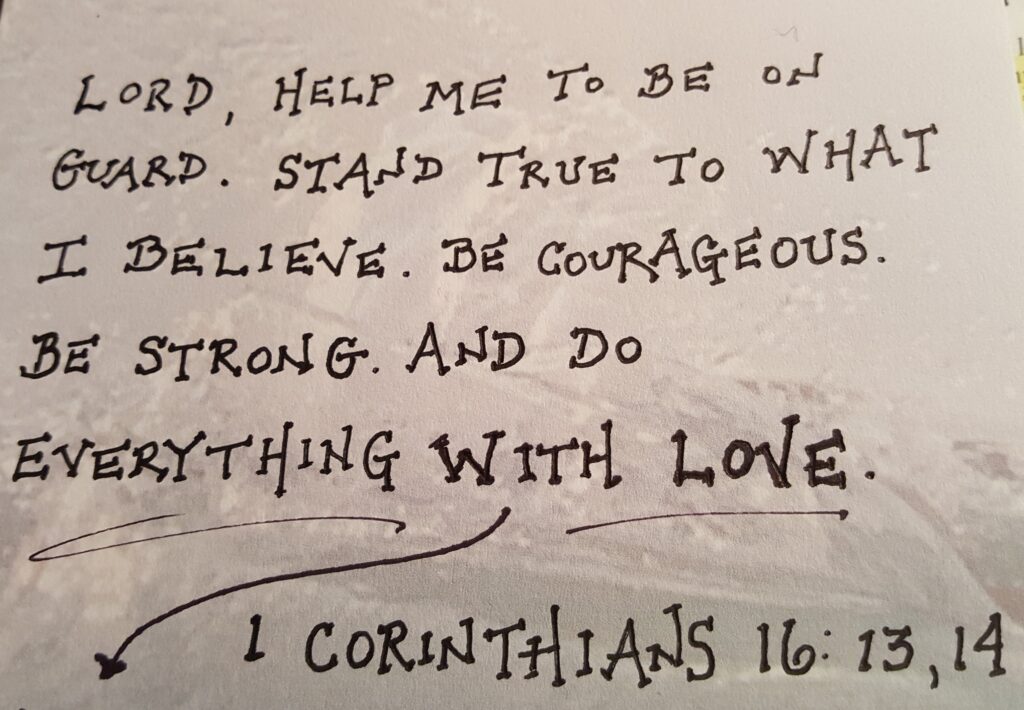 LORD, HELP ME TO BE ON
GUARD. STAND TRUE TO WHAT
I BELIEVE. BE COURAGEOUS.
BE STRONG. AND DO
EVERYTHING WITH LOVE.
1 CORINTHIANS 16:13,14